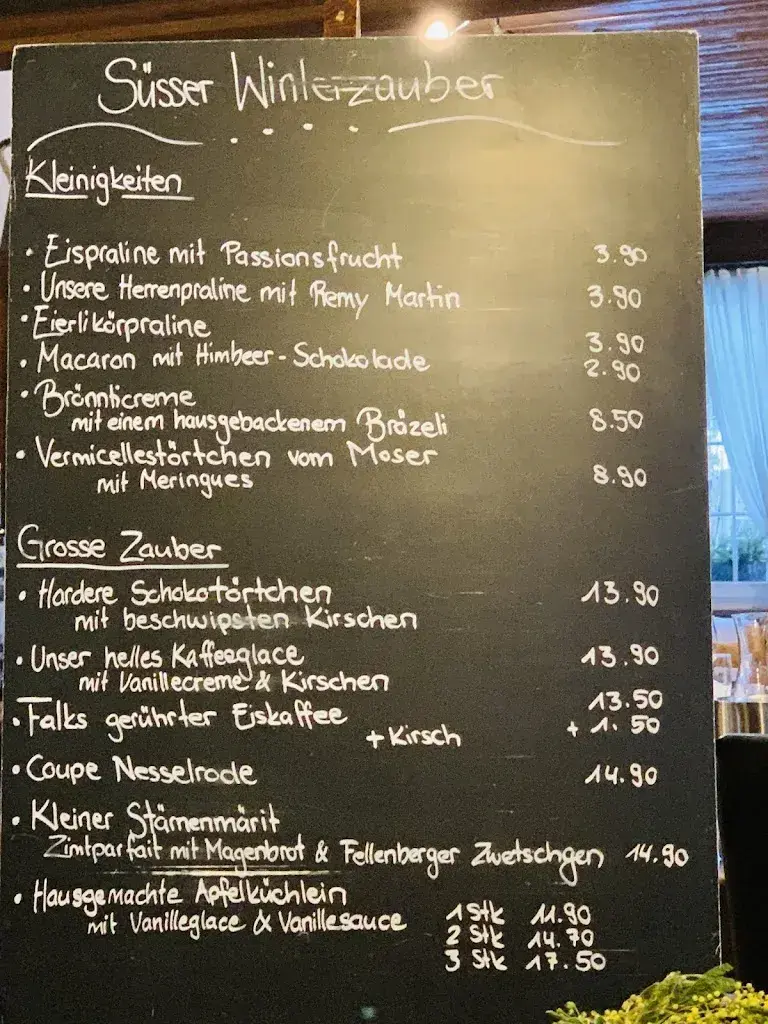 Süsser Winterzauber
Kleinigkeiten
• Eispraline mit Passionsfrucht 3.90
• Unsere Herrenpraline mit Remy Martin 3.90
• Eierlikörpraline 3.90
• Macaron mit Himbeer-Schokolade 2.90
• Brönnticreme
mit einem hausgebackenem Bräzeli 8.50
• Vermicellestörtchen vom Moser
mit Meringues 8.90
Grosse Zauber
• Hardere Schokotörtchen 13.90
mit beschwipsten Kirschen
• Unser helles Kaffeeglace 13.90
mit Vanillecreme & Kirschen
• Falks gerührter Eiskaffee 13.50
+ Kirsch + 1.50
• Coupe Nesselrode 14.90
• Kleiner Stärnenmärit
Zimtparfait mit Magenbrot & Fellenberger Zwetschgen 14.90
• Hausgemachte Apfelküchlein
mit Vanilleglace & Vanillesauce 1 Stk 11.90
2 Stk 14.70
3 Stk 17.50